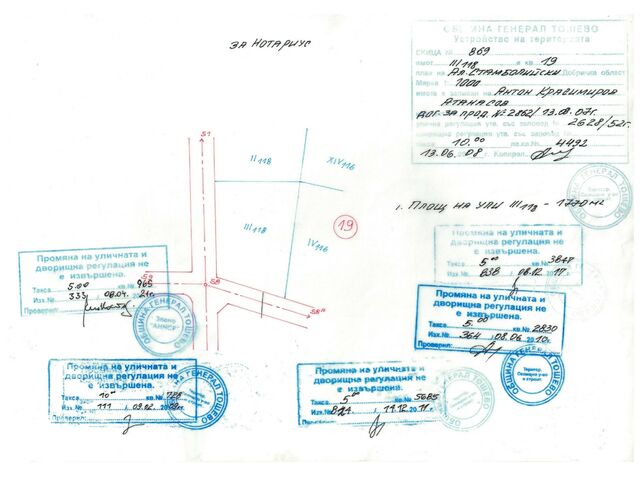 ЗА НОТАРИУС
ОБЩИНА ГЕНЕРАЛ ТОШЕВО
Устройство на територията
СКИЦА № 869
имот III118 в кв. 19
план на Ал. Стамболийски Добричка област
Мярка 1: 1000
имота е записан на Антон Красимиров
Атанасов
ДОГ. ЗА ПРОД. № 2862/ 13.08.07г.
2628/52г.
10.00 4492
13.06.08 г. Копирал:
1. ПЛОЩ НА УПИ III118 - 1770 м2
S1
II118
XIV116
III118
IV116
19
S8
Промяна на уличната и
дворищна регулация не
е извършена.
Такса 5.00 кв.№ 965
Изх.№ 333 08.04. 21г.
Проверил:
ОБЩИНА ГЕНЕРАЛ ТОШЕВО
Промяна на уличната и
дворищна регулация не
е извършена.
Такса 5.00 кв.№ 3847
838 08.12. 17г.
Промяна на уличната и дворищна регулация не
е извършена.
Такса 5.00 кв.№ 2830
Изх.№ 364 / 08.06. 2010г.
Проверил:
ОБЩИНА ГЕНЕРАЛ ТОШЕВО
Промяна на уличната и
дворищна регулация не
е извършена.
Такса 10.00 кв.№ 728
Изх.№ 111 / 09.02. 20
Проверил:
Промяна на уличната и
дворищна регулация не
е извършена.
Такса 5.00 кв.№ 5685
Изх.№ 14.12. 2011г.
Проверил: